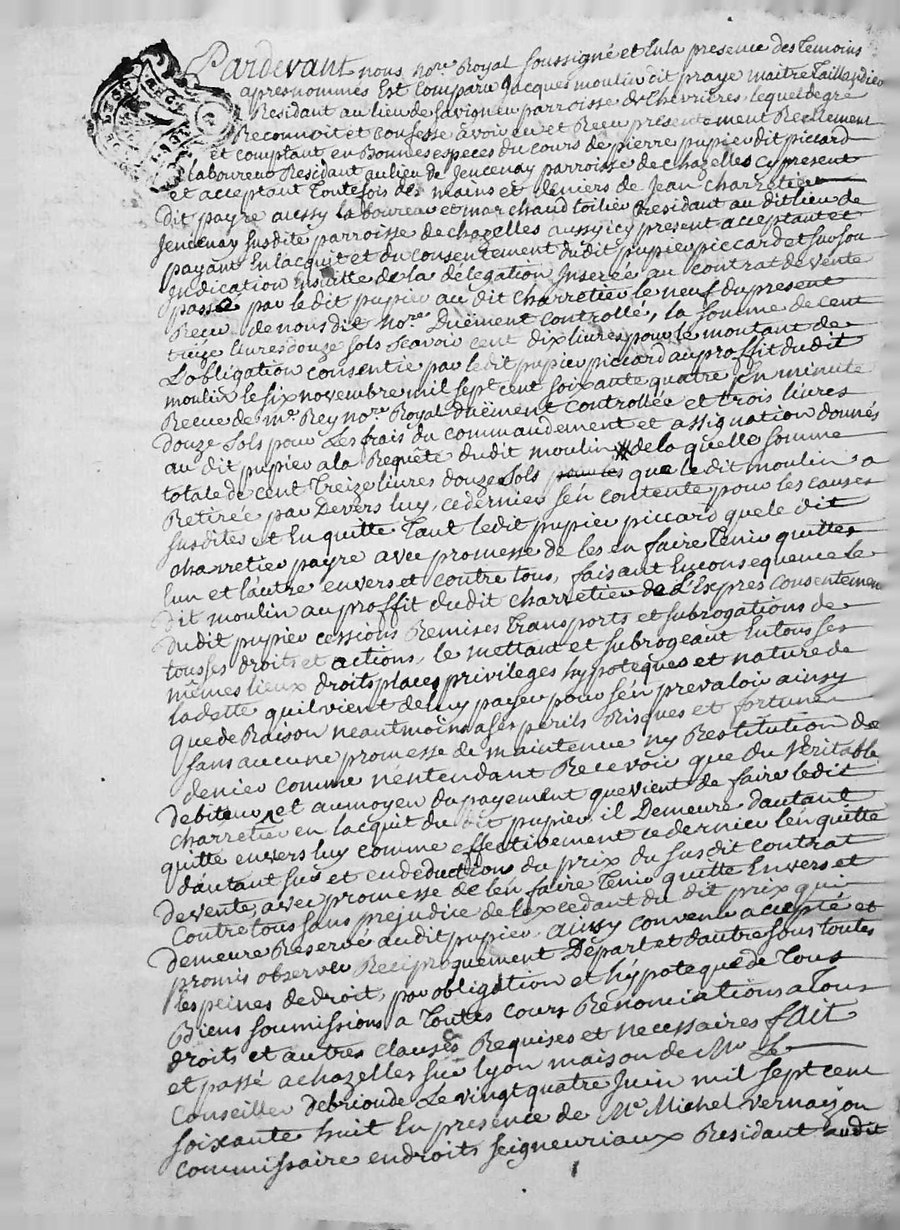 Pardevant nous no.re Royal soussigné et En la presence des temoins
apres nommés Est comparu Jacques moulin dit praye maitre Taillandier
Residant au lieu de Savigneu parroisse de Chevrieres, lequel de gré
Reconnoit et confesse avoir eu et Receu presentement Reellement
et comptant en Bonnes especes du cours de pierre pupier dit piccard
laboureur Residant au lieu de Jencenay parroisse de chazelles cy present
et acceptant Toutefois des mains et deniers de Jean charretier
dit payre aussy laboureur et marchand toilier Residant au dit lieu de
Jencenay susdite parroisse de chazelles aussy icy present acceptant et
payant En lacquit et du consentement dudit pupier piccard et sur son
Indication Ensuitte de la délégation Inserée au contrat de vente
passé par le dit pupier au dit charretier le neuf du present
Receu de nous dit No.re Düement controllé, la somme de cent
treize livres douze sols scavoir cent dix livres pour le montant de
L'obligation consentie par le dit pupier piccard au proffit du dit
moulin le six novembre mil sept cent soixante quatre En minute
Receue de me. Rey no.re Royal Düement controllée et trois livres
douze sols pour Les frais du commandement et assignation donnés
au dit pupier a la Requête du dit moulin de la quelle somme
totale de cent Treize livres douze sols que le dit moulin a
Retirée par Devers luy, ce dernier s'en contente pour les causes
susdites et En quitte Tant le dit pupier piccard que le dit
charretier payre avec promesse de les en faire Tenir quittes
l'un et l'autre envers et contre tous, faisant En consequence le
dit moulin au proffit du dit charretier de L'Expres consentement
du dit pupier cessions Remises Transports et subrogations de
tous ses droits et actions, le mettant et subrogeant En tous ses
mêmes lieux droits places privileges hypoteques et nature de
la dette qu'il vient de luy payer pour s'en prevaloir ainsy
que de Raison neautmoins a ses perils Risques et fortune
sans aucune promesse de maintenue ny Restitution de
denier comme n'entendant Recevoir que du Veritable
debiteur, et au moyen du payement que vient de faire le dit
charretier en lacquit du dit pupier, il Demeure d'autant
quitte envers luy comme effectivement ce dernier l'en quitte
d'autant sur et en deductions du prix du susdit contrat
de vente avec promesse de l'en faire Tenir quitte Envers et
contre tous sans prejudice de l'excedant du dit prix qui
demeure Reservé au dit pupier, ainsy convenu accepté et
promis observer Reciproquement De part et d'autre sous toutes
les peines de droit, par obligation et hypoteque de Tous
Biens soumissions a Toutes cours Renonciations a Tous
droits et autres clauses Requises et necessaires fait
et passé a chazelles sur Lyon maison de Mr Le
Conseiller debrioude Le vingt quatre Juin mil sept cent
soixante huit En presence de Me Michel Vernaizon
commissaire en droits seigneuriaux Residant audit